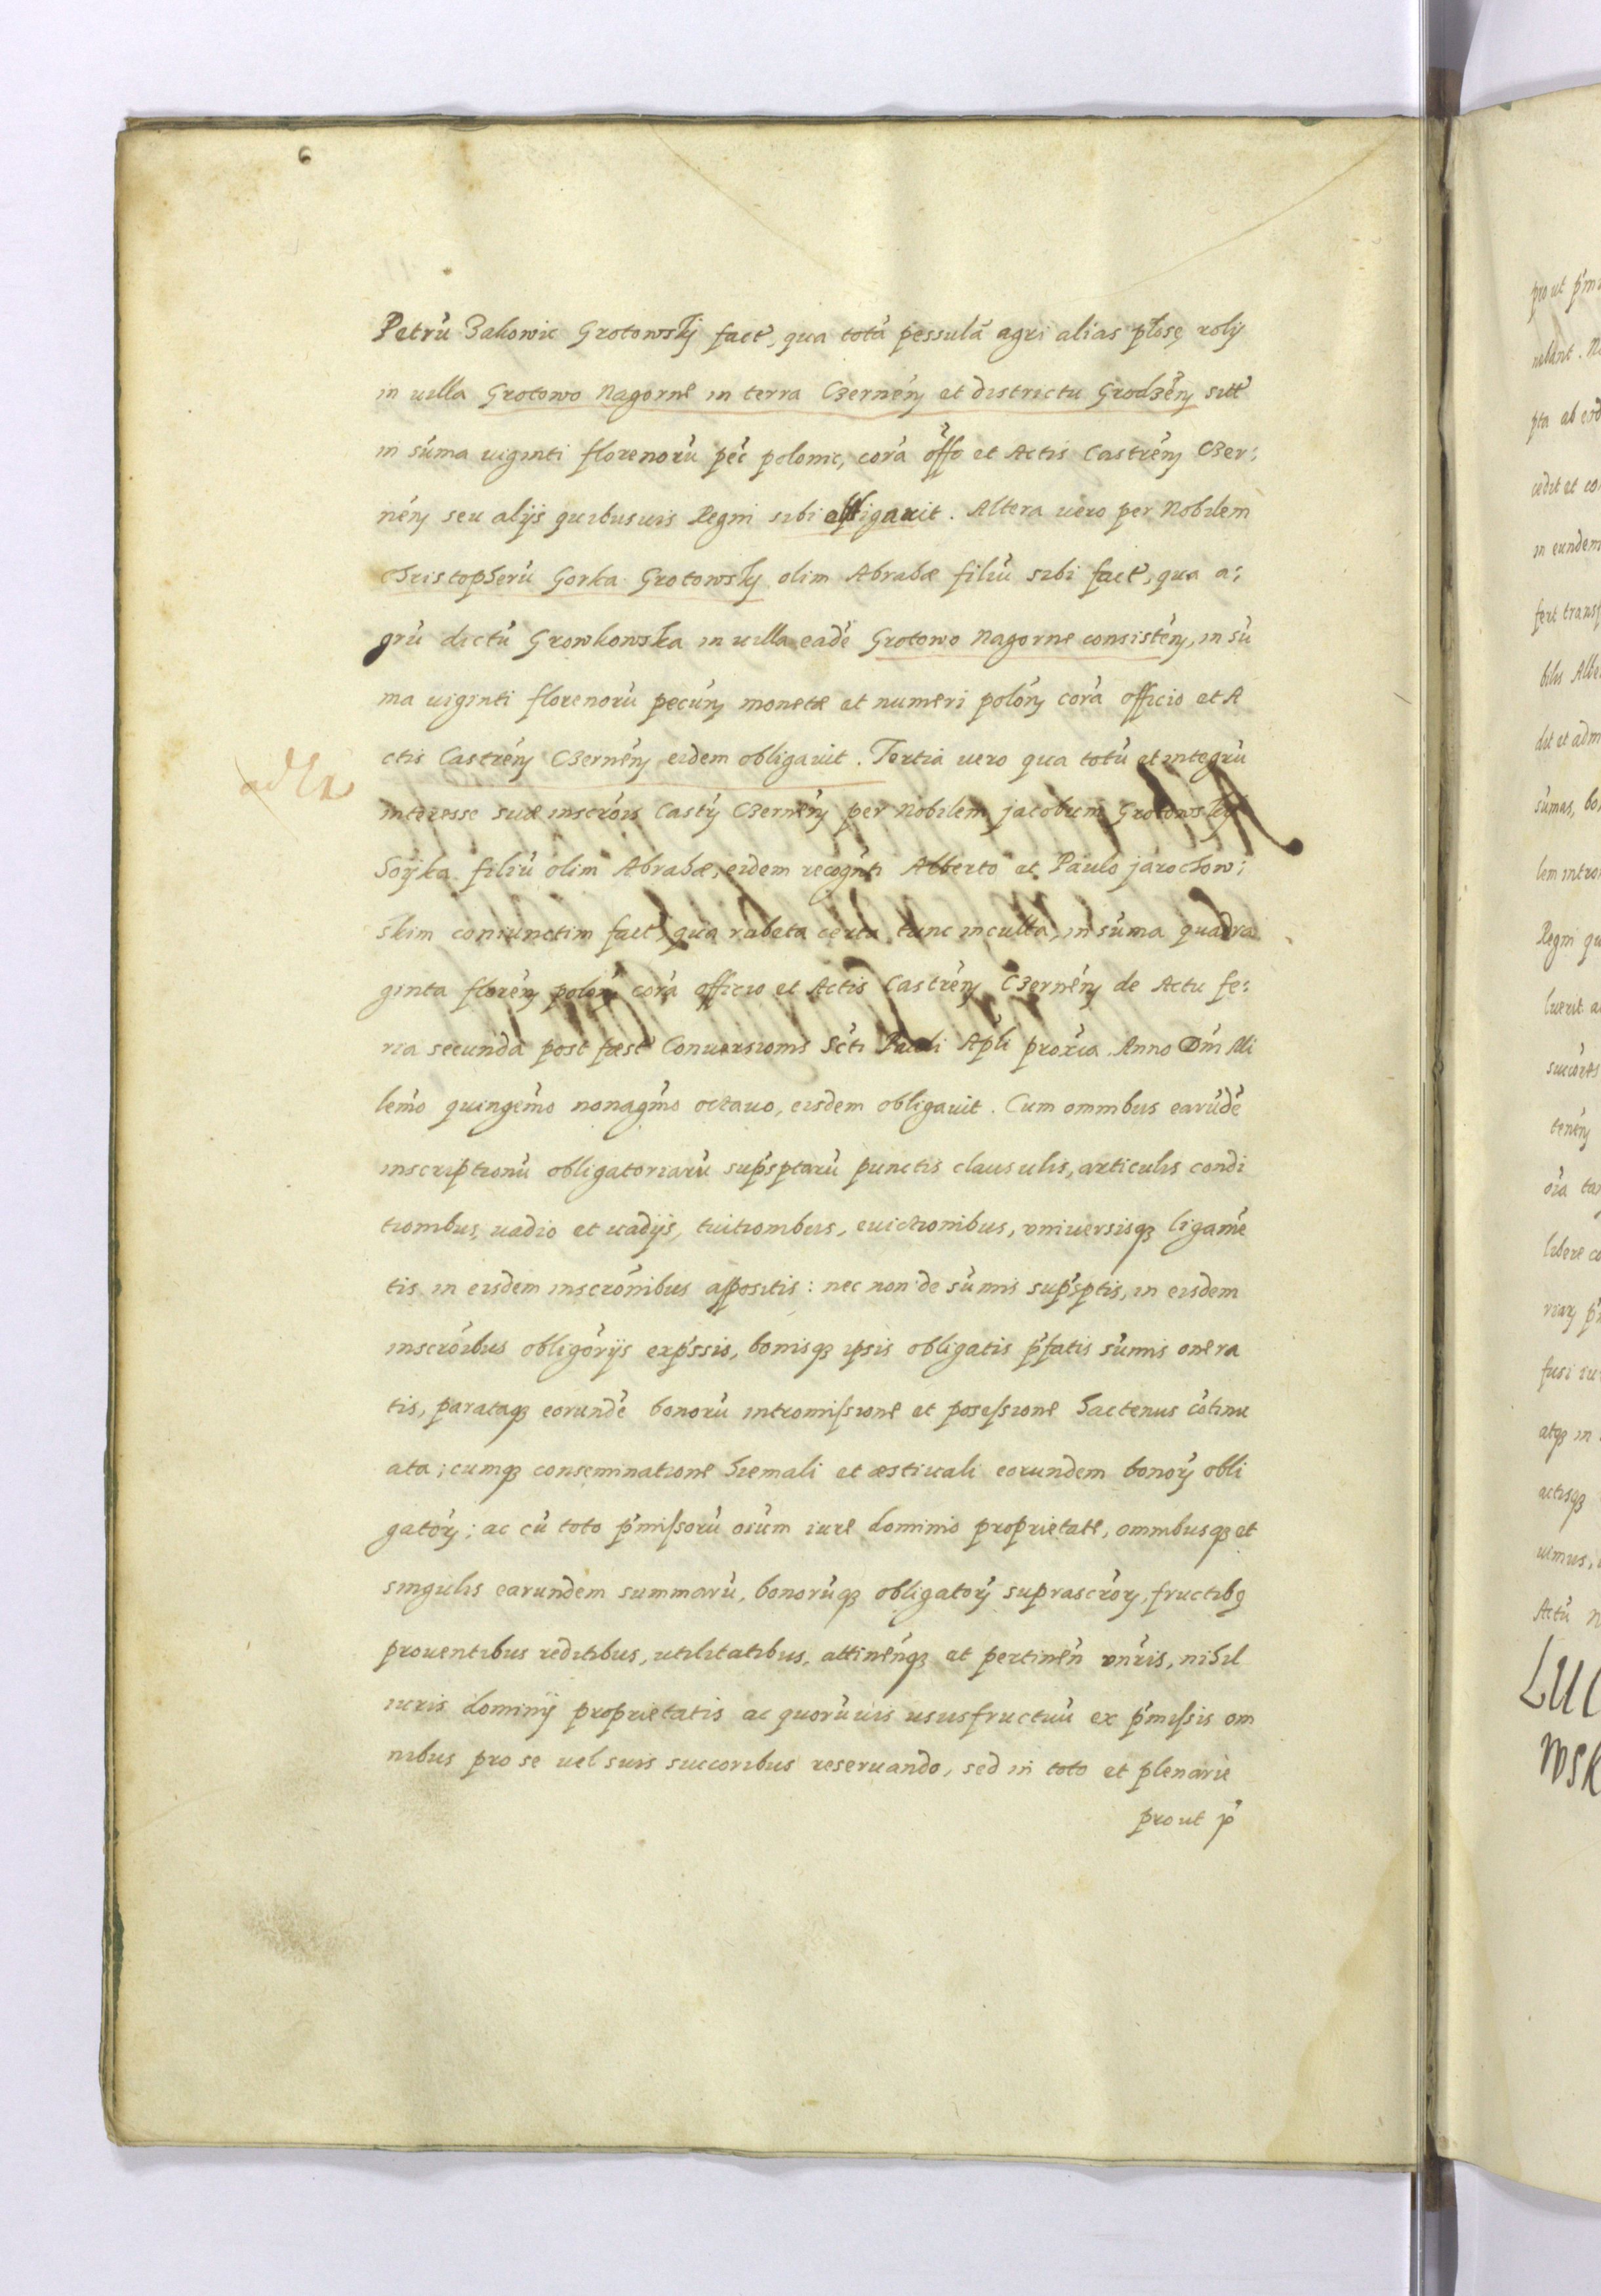 6
Petrũ Zakowic Grotowskj fact̃, qua totã pessulã agri alias płosę rolÿ
in uilla Grotowo Nagorne in terra Czerneñ et districtu Grodzeñ sitt̃
in sũma uiginti florenorũ pec̃ polonic, corã offo et Actis Castreñ Czer:
neñ seu alijs quibusuis Regni sibi obligauit. Altera uero per Nobilem
Christopherũ Gorka Grotowskj olim Abrahæ filiũ sibi fact̃, qua a:
grũ dictũ Growkowska in uilla eadẽ Grotowo Nagorne consisteñ, in sũ
ma uiginti florenorũ pecuñ monetæ et numeri poloñ corã officio et A
ctis Castreñ Czerneñ eidem obligauit. Tertia uero qua totũ et integrũ
interesse suæ inscrõis Castr̃ Czerneñ per Nobilem jacobum Grotowskj
Soÿka filiũ olim Abrahæ, eidem recognti Alberto et Paulo jarochow:
skim coniunctim fact̃, qua rubeta certa tunc inculta, in sũma quadra
ginta floreñ poloñ corã officio et Actis Castreñ Czerneñ de Actu fe:
ria secunda post fæst̃ Conuersionis Scti Pauli Apli proxia. Anno Dñi Mi
lemo quingemo nonagmo octauo, eisdem obligauit. Cum omnibus earũdẽ
inscriptionũ obligatoriarũ supsptarũ punctis clausulis, articulis condi
tionibus, uadio et uadijs, tuitionibus, euictionibus, vniversisqʒ ligamẽ
tis in eisdem inscrõnibus appositis: nec non de sũmis supsptis, in eisdem
inscrõibus obligorijs expssis, bonisqʒ ipsis obligatis pfatis sũmis onera
tis, parataqʒ eorundẽ bonorũ intromiſsione et poseſsione hactenus cõtinu
ata; cumqʒ conseminatione hiemali et æstiuali eorundem bonor̃ obli
gator̃; ac cũ toto pmiſsorũ oĩum iure dominio proprietate, omnibusqʒ et
singulis earundem summarũ, bonorũqʒ obligator̃ suprascrõr̃, fructibq
prouentibus reditibus, utilitatibus, attineñqʒ et pertineñ vnũris, nihil
iuris dominij proprietatis ac quorũuis ususfructuũ ex pmiſsis om
nibus pro se uel suis succoribus reseruando, sed in toto et plenariè
prout p